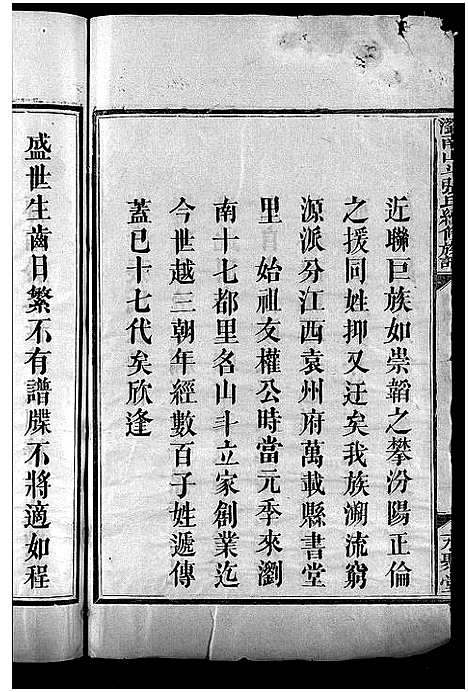 瀏南山斗張氏續修族譜
近聯巨族如崇韜之攀汾陽正倫
之援同姓抑又迂矣我族溯流窮
源派分江西袁州府萬載縣書堂
里自始祖友權公時當元季來瀏
南十七都里名山斗立家創業迄
今世越三朝年經數百子姓遞傳
蓋已十七代矣欣逢
盛世生齒日繁不有譜牒不將適如程